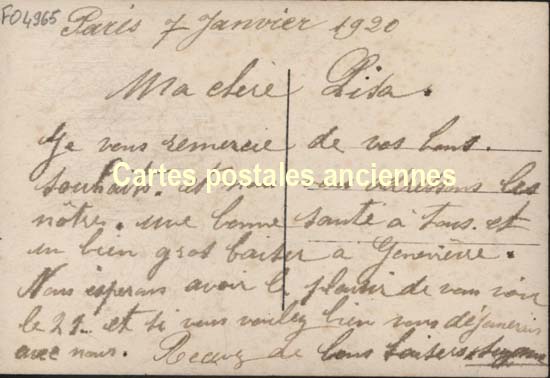 FO4965
Paris 7 Janvier 1920
Ma chère Lisa.
Je vous remercie de vos bons.
souhaits. et nous vous adressons les
Cartes postales anciennes
nôtres. une bonne santé à tous. et
un bien gros baiser à Geneviève.
Nous espérons avoir le plaisir de vous voir
le 21. et si vous voulez bien vous déjeunerez
avec nous. Recevez de bons baisers